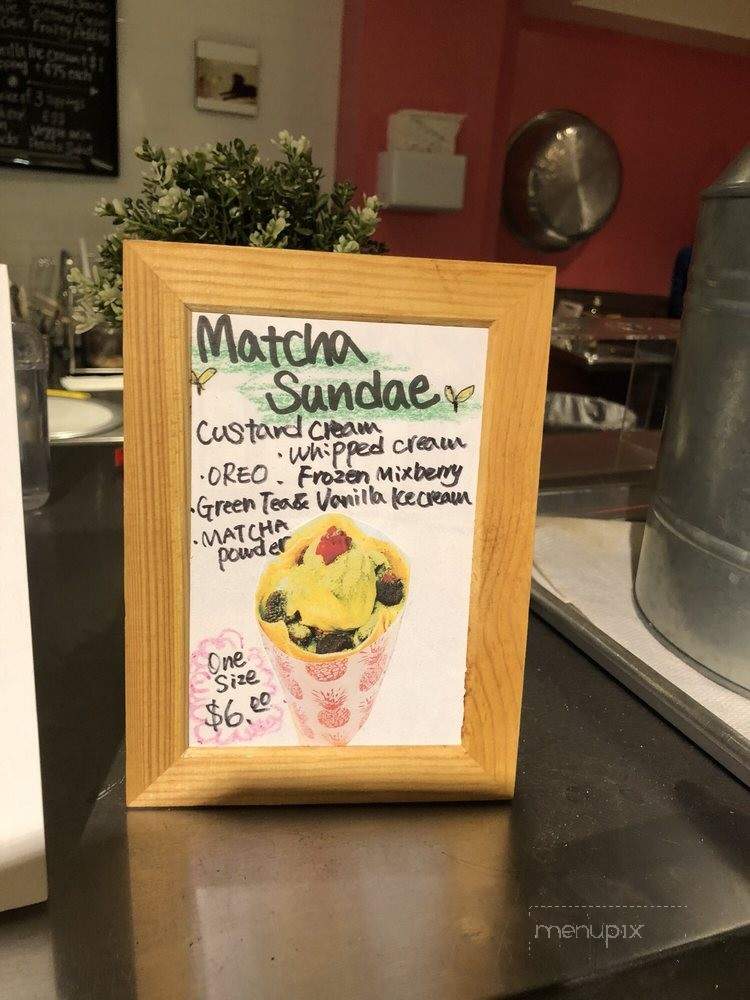 Matcha
Sundae
Custard cream
· Whipped cream
· OREO · Frozen Mixberry
· Green Tea & Vanilla Ice cream
· MATCHA
powder
One
Size
$6.00
menupix